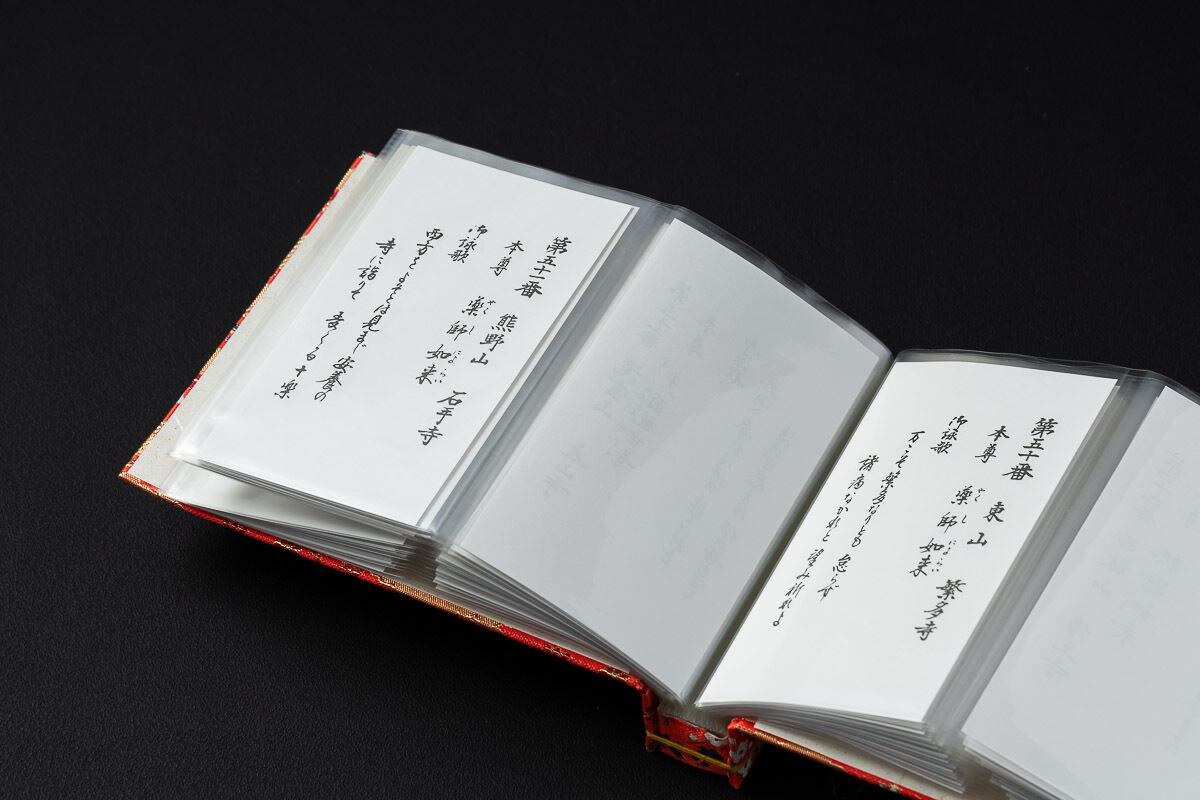 第五十番 東山 繁多寺
本尊 薬師如来
やくし にょらい
御詠歌
万こそ繁多なりとも 怠らず
諸病なかれと 望み祈れよ
第五十一番 熊野山 石手寺
本尊 薬師如来
やくし にょらい
御詠歌
西方をよそとは見まじ 安養の
寺に詣りて 受くる十楽